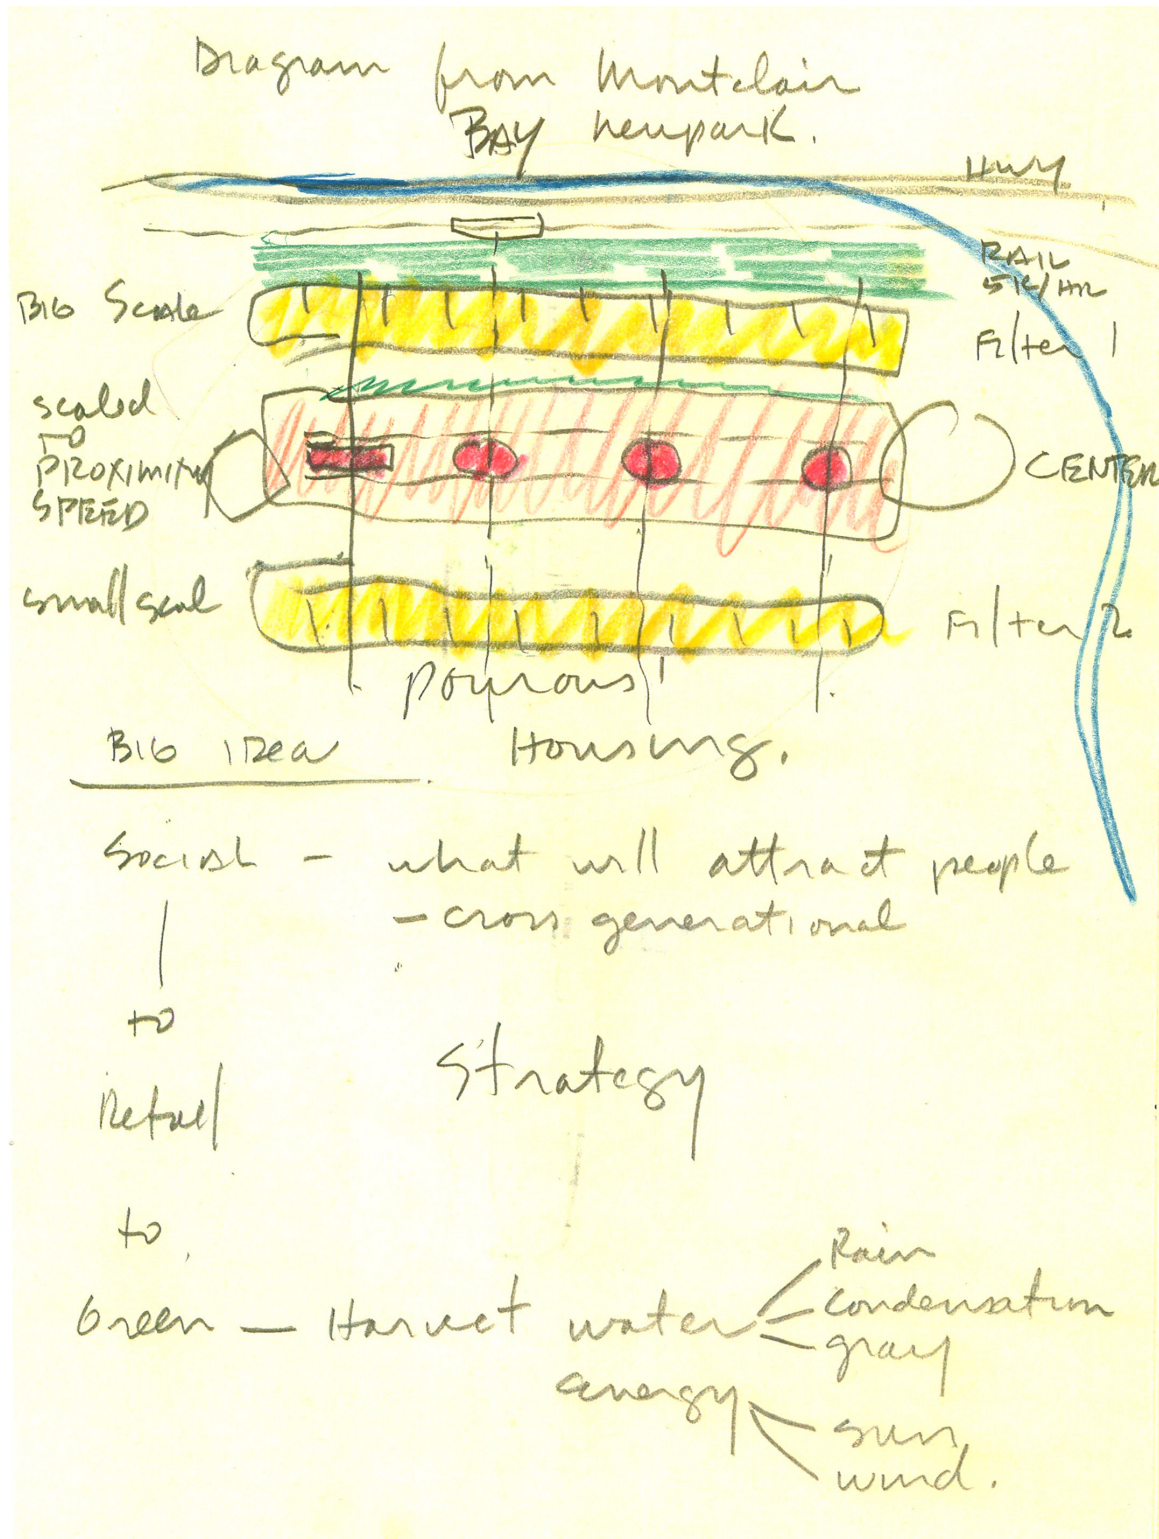 Diagram from Montclair
BAY newpark.
HWY
RAIL
5K/HR
BIG Scale
Filter 1
scaled
TO
PROXIMITY
SPEED
CENTER
small scal
Filter 2
pourous
BIG IDea
Housing.
Social - what will attract people
- cross generational
to
Strategy
Retail
to
Green - Harvet water
Rain
condensation
gray
energy
sun
wind.